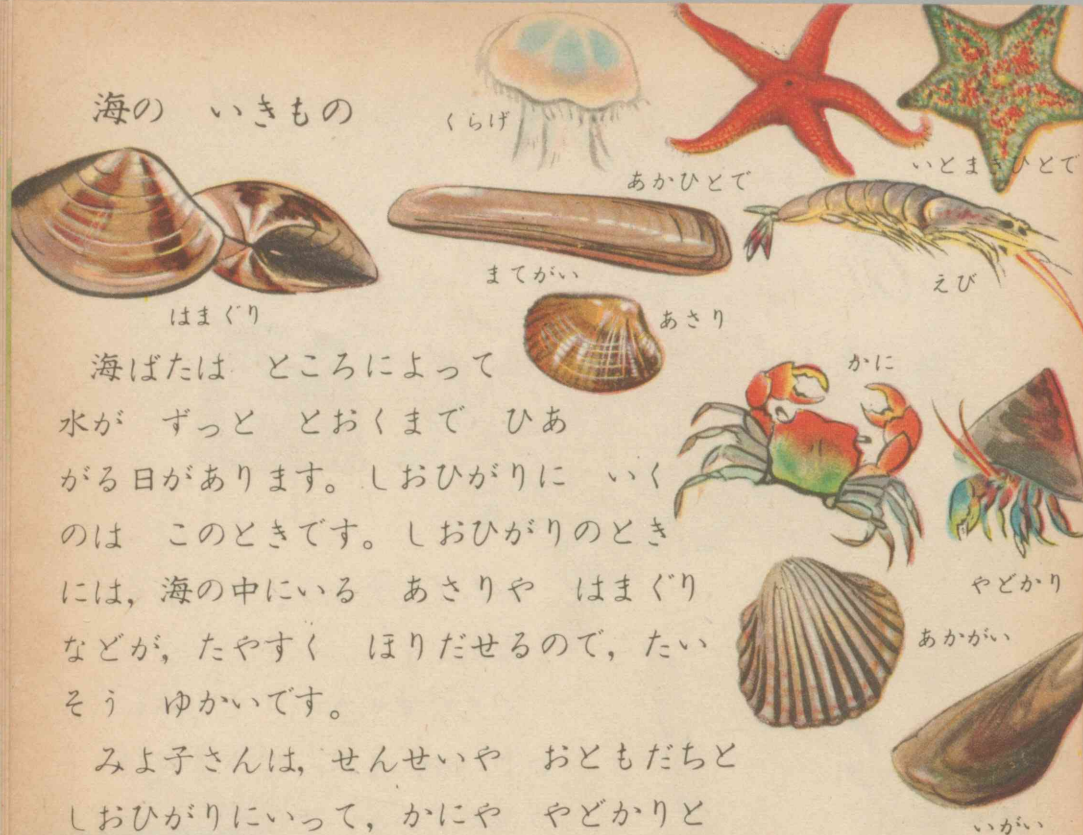 海の いきもの
くらげ
あかひとで
いとまきひとで
まてがい
えび
はまぐり
あさり
かに
やどかり
あかがい
いがい
海ばたは ところによって
水が ずっと とおくまで ひあ
がる日があります。しおひがりに いく
のは このときです。しおひがりのとき
には, 海の中にいる あさりや はまぐり
などが, たやすく ほりだせるので, たい
そう ゆかいです。
みよ子さんは, せんせいや おともだちと
しおひがりにいって, かにや やどかりと